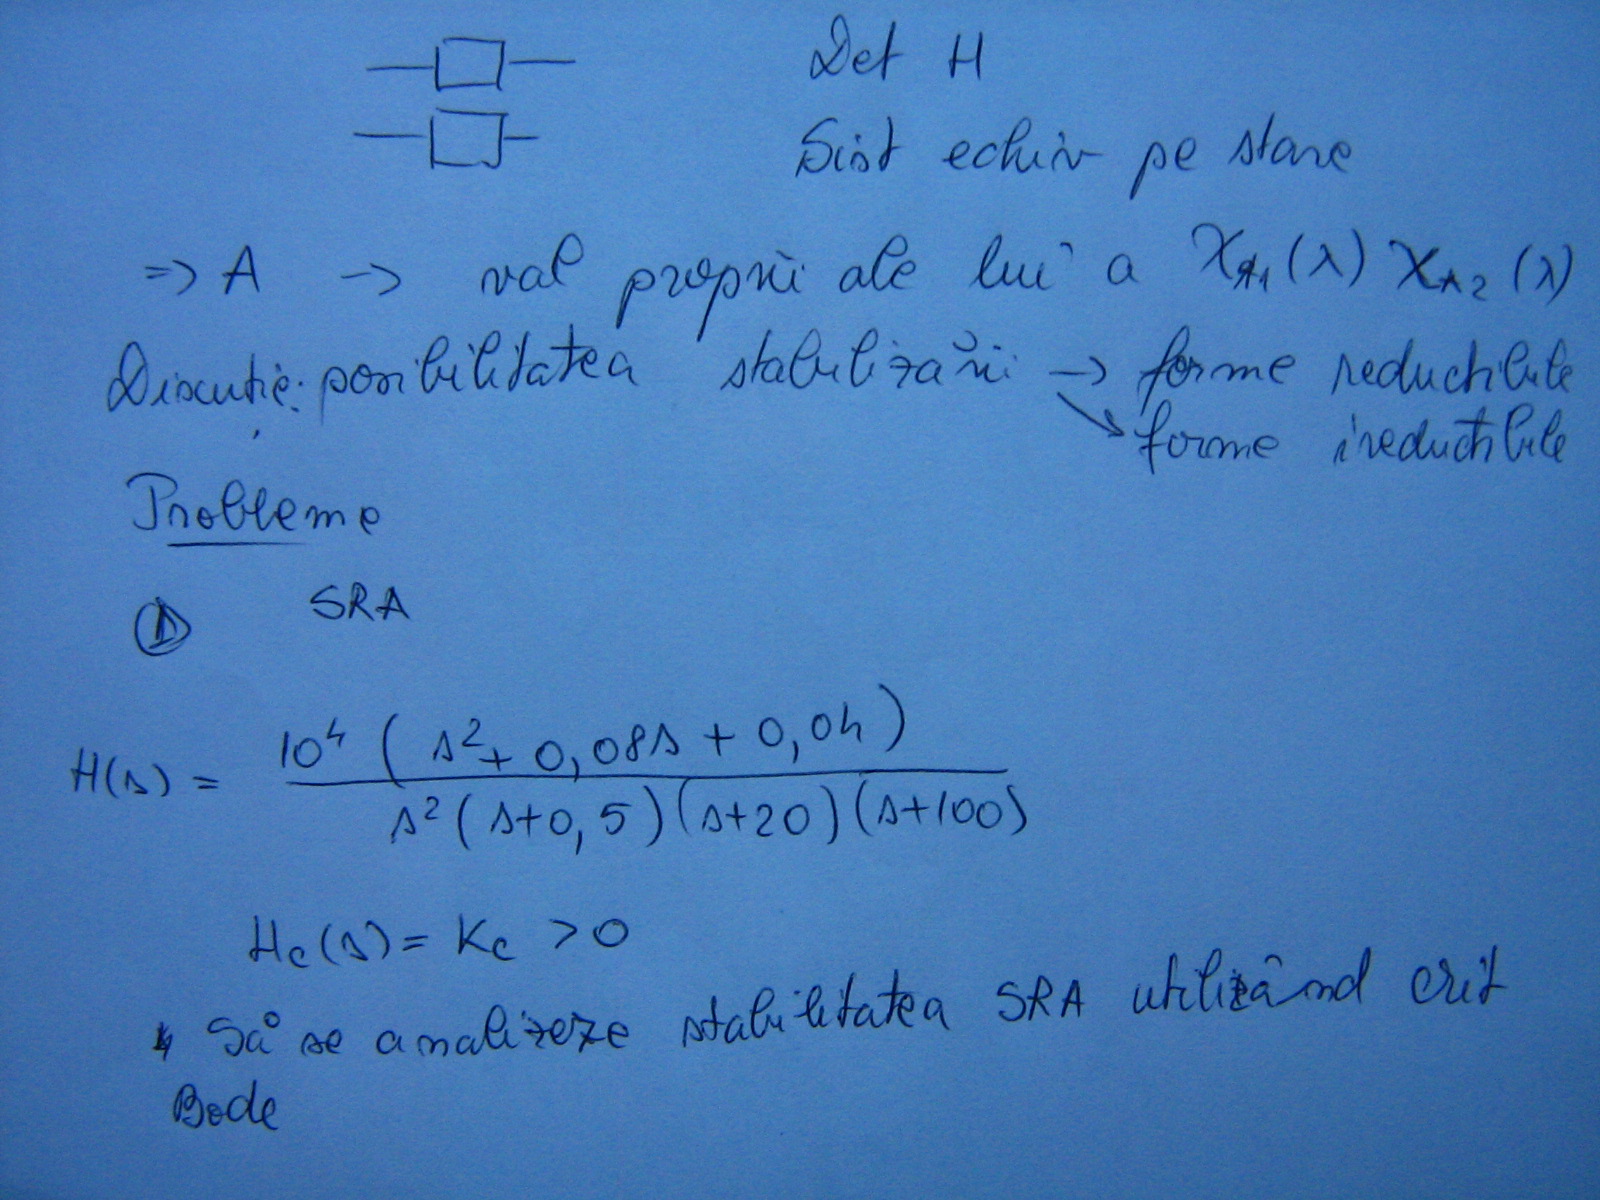 Det H
Sist echiv pe stare
=> A -> val proprii ale lui a χA1(λ) χA2(λ)
Discuție: posibilitatea stabilizării -> forme reductibile
↘ forme ireductibile
Probleme
① SRA
H(s) = 10⁴ ( s² + 0,08s + 0,04 ) / s² ( s+0,5 ) (s+20) (s+100)
Hc(s) = Kc > 0
Să se analizeze stabilitatea SRA utilizând crit
Bode